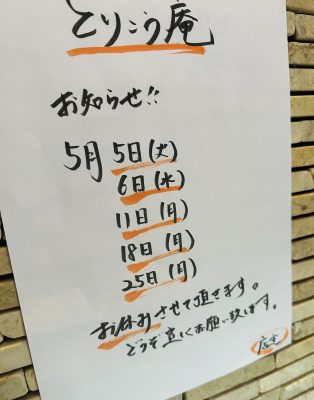 とりこう庵
お知らせ!!
5月 5日(火)
6日(水)
11日(月)
18日(月)
25日(月)
お休みさせて頂きます。
どうぞ宜しくお願い致します。
店主